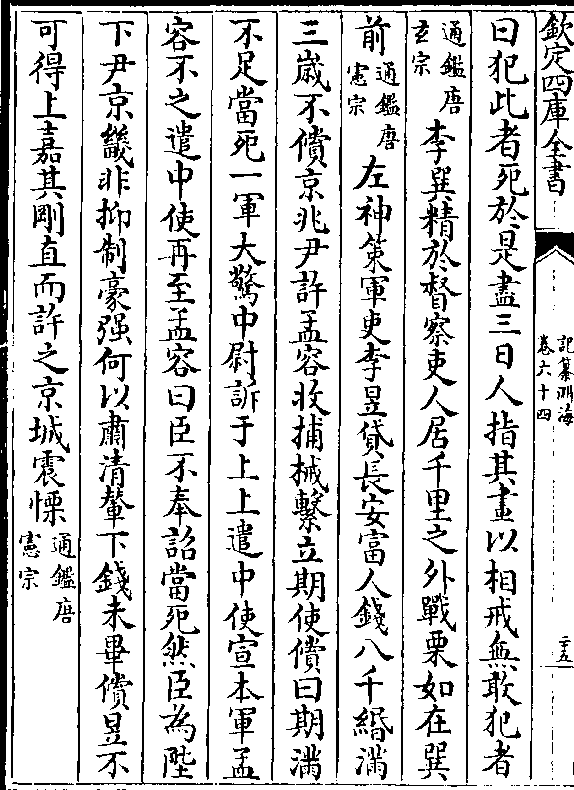 欽定四庫全書
記纂淵海
卷六十四
二十五
曰犯此者死於是盡三日人指其畫以相戒無敢犯者
通鑑唐
玄宗
李巽精於督察吏人居千里之外戰栗如在巽
前
通鑑唐
憲宗
左神策軍吏李昱貸長安富人錢八千緡滿
三歳不償京兆尹許孟容收捕械繫立期使償曰期滿
不足當死一軍大驚中尉訴于上上遣中使宣本軍孟
容不之遣中使再至孟容曰臣不奉詔當死然臣為陛
下尹京畿非抑制豪强何以肅清輦下錢未畢償昱不
可得上嘉其剛直而許之京城震慄
通鑑唐
憲宗